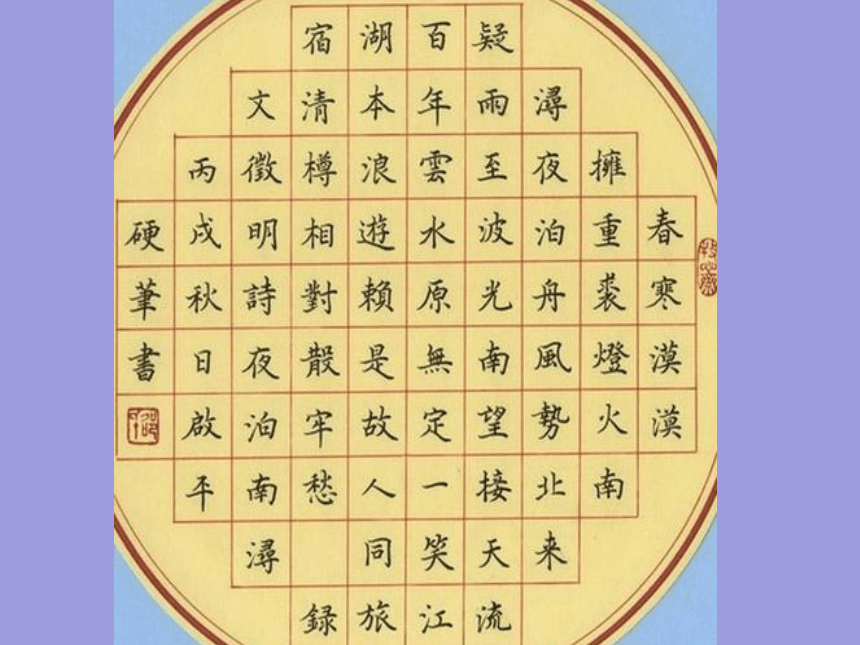 春寒漠漠
擁重裘燈火南
潯夜泊舟風勢北来
疑雨至波光南望接天流
百年雲水原無定一笑江
湖本浪遊賴是故人同旅
宿清樽相對散牢愁 録
文徵明詩夜泊南潯
丙戌秋日啟平
硬筆書